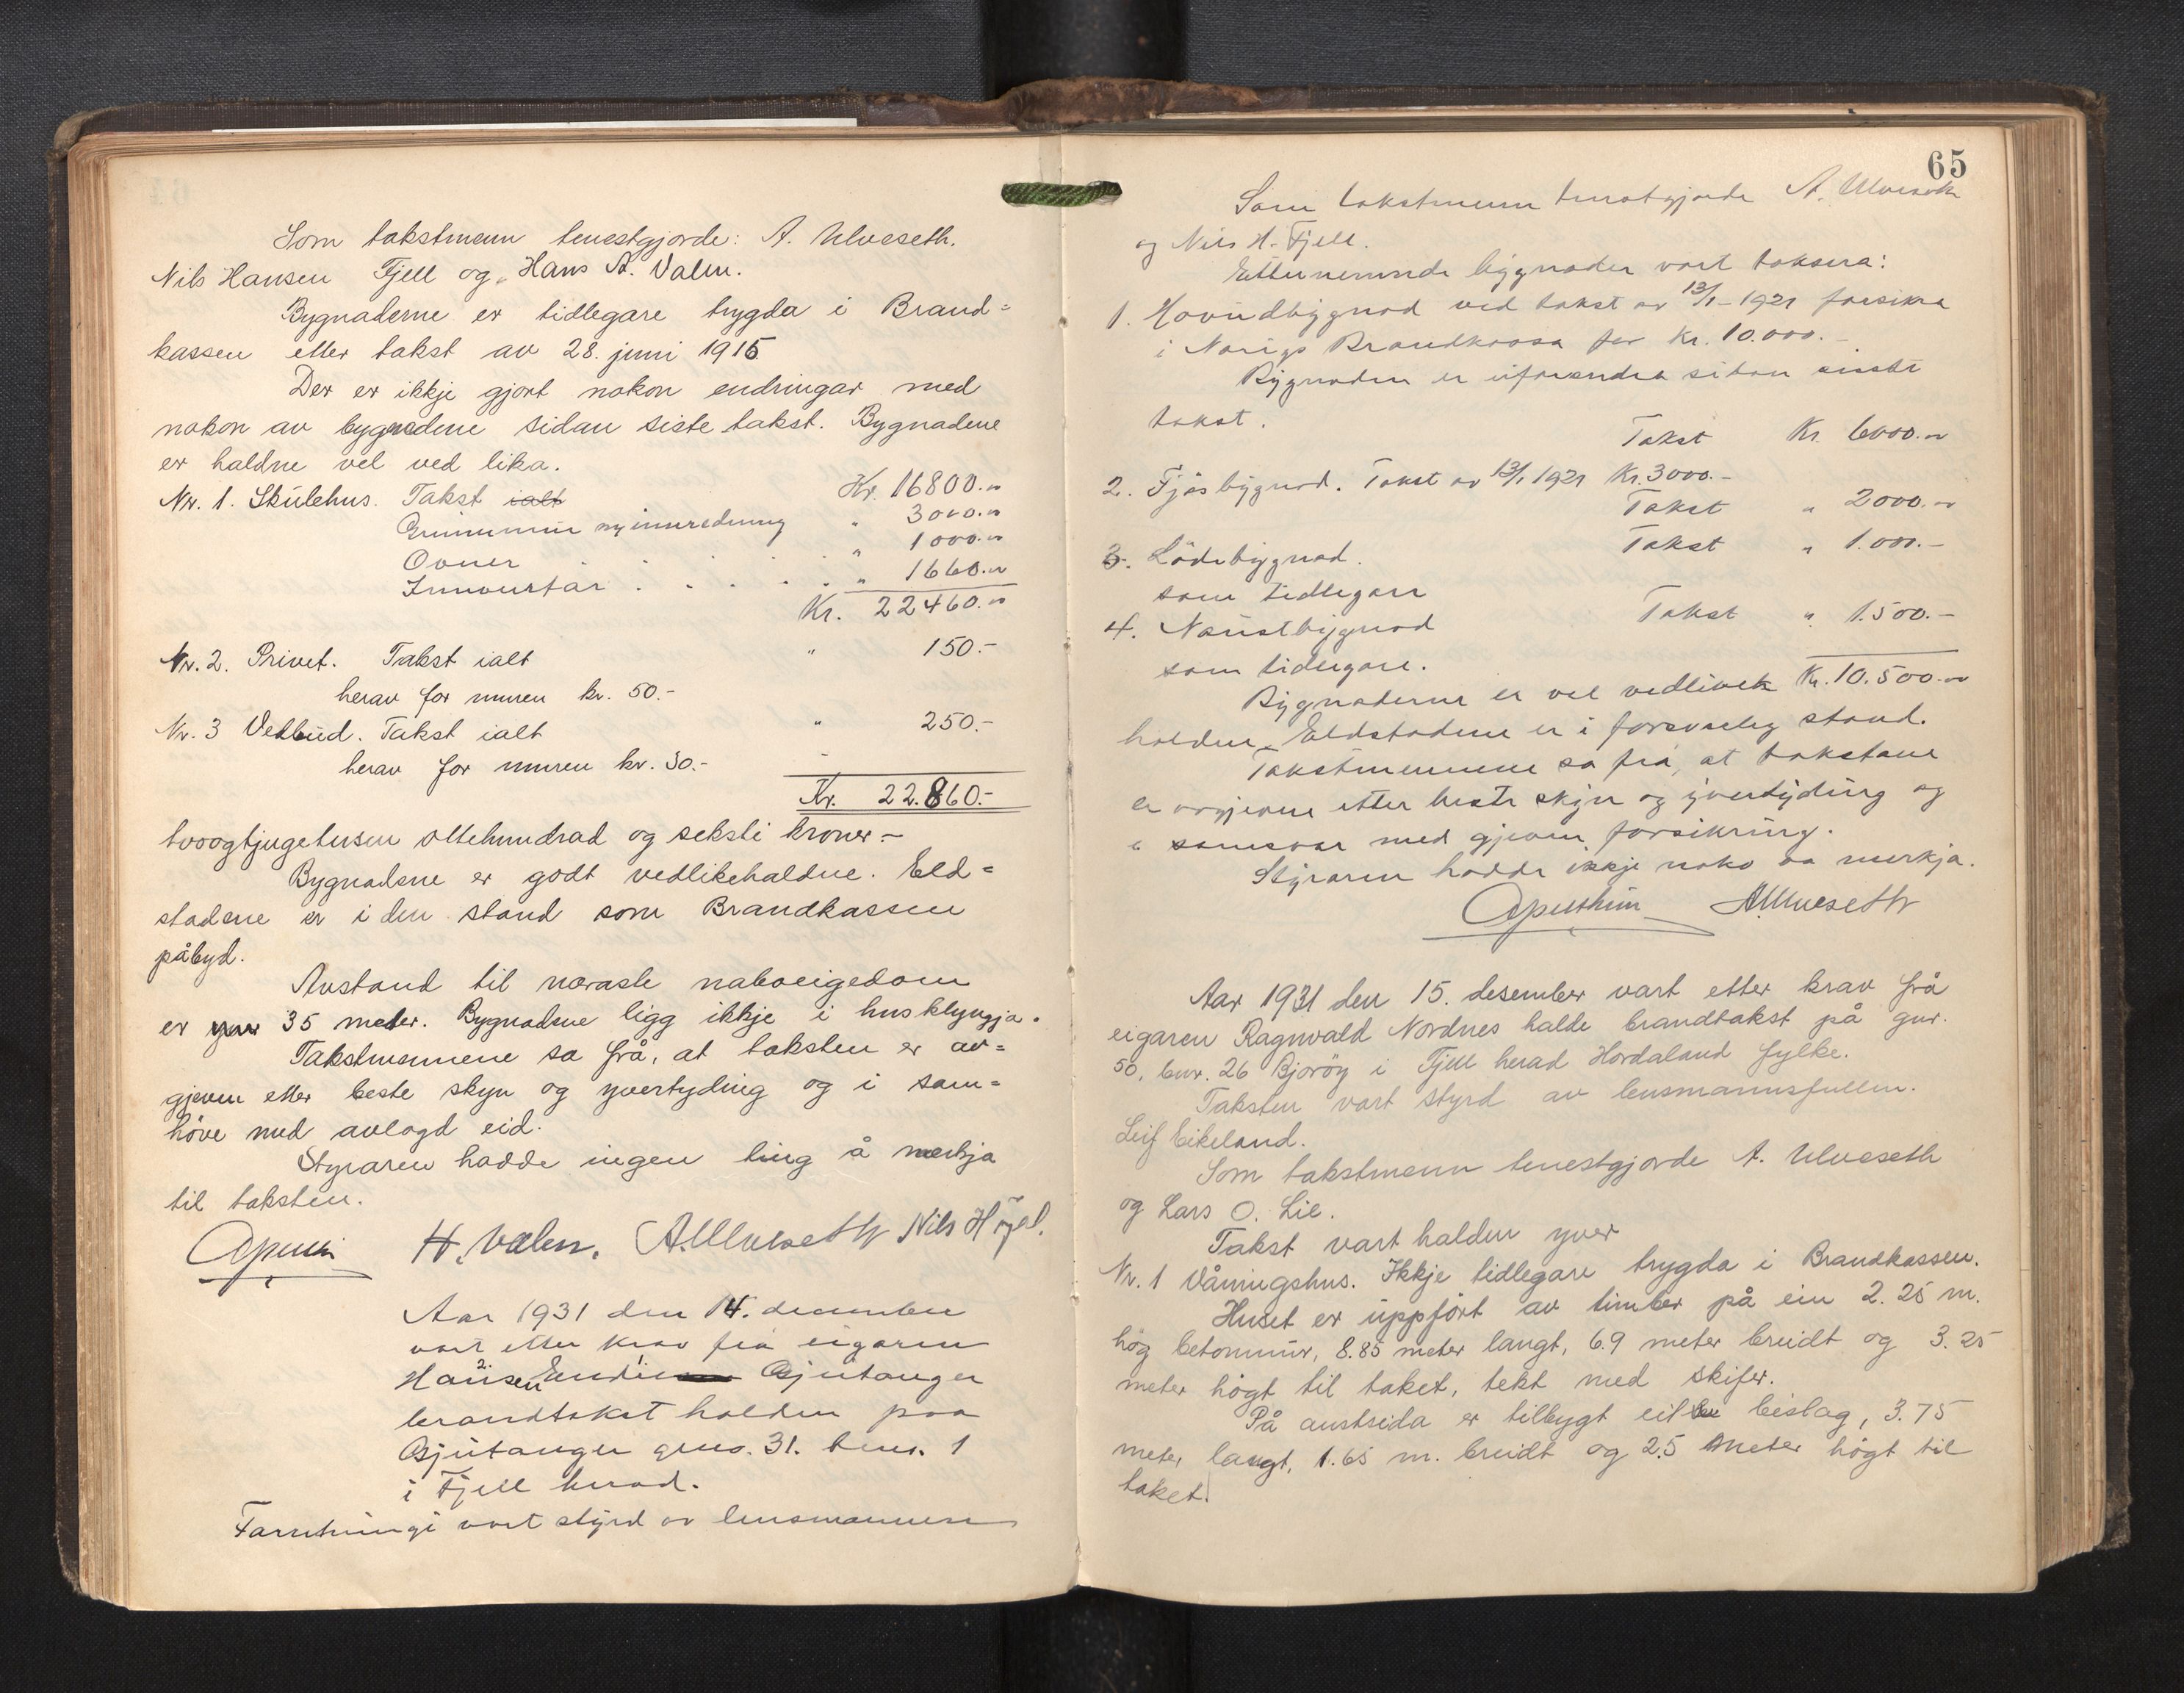 Som takstmenn tenestgjorde: A. Ulveseth.
Nils Hansen Fjell og Hans A. Valen.
Bygnaderne er tidlegare trygda i Brand=
kassen etter takst av 28. juni 1915
Der er ikkje gjort nokon endringar med
nokon av bygnadene sidan siste takst. Bygnadene
er haldne vel ved lika.
Nr. 1. Skulehus. Takst ialt Kr. 16800.-
Grunnmur ny innredning " 3000.-
Ovner " 1000.-
Innventar . . . . " 1660.-
Kr. 22460.-
Nr. 2. Privet. Takst ialt " 150.-
herav for muren kr. 50.-
Nr. 3 Vedbud. Takst ialt " 250.-
herav for muren kr. 30.-
Kr. 22.860.-
tvoogtjugetusen ottehundrad og seksti kroner -
Bygnadene er godt vedlikehaldne. Eld=
stadene er i den stand som Brandkassen
påbyd.
Avstand til næraste naboeigedom
er yver 35 meter. Bygnadene ligg ikkje i husklyngja.
Takstmennene sa frå, at taksten er av=
gjeven etter beste skyn og yvertyding og i sam=
höve med avlagd eid.
Styraren hadde ingen ting å merkja
til taksten.
H. Valen. A. Ulveseth Nils H Fjell.
Aar 1931 den 14. december
vart etter krav frå eigaren
Hansen Gjutanger
brandtakst halden paa
Gjutanger gno. 31. bno. 1
i Fjell herad.
Forretningi vart styrd av lensmannen
65
Som takstmenn tenestgjorde A. Ulveseth
og Nils H. Fjell.
Etternemnde bygnader vart taksera:
1. Hovudbygnad ved takst av 13/1-1921 forsikra
i Norigs Brandkassa for Kr. 10.000.-
Bygnaden er uforandra sidan siste
takst.
Takst Kr. 6000.-
2. Fjösbygnad. Takst av 13/1 1921 Kr. 3000.-
Takst " 2000.-
3. Lödebygnad. Takst " 1.000.-
som tidlegare
4. Naustbygnad Takst " 1.500.-
som tidlegare.
Kr. 10.500.-
Bygnaderne er vel vedlikeh
holden. Eldstadene er i forsvarleg stand.
Takstmennene sa frå, at takstane
er avgjevne etter beste skjyn og yvertyding og
i samsvar med gjeven forsikring.
Styraren hadde ikkje noko aa merkja.
A. Ulveseth
Aar 1931 den 15. desember vart etter krav frå
eigaren Ragnvald Nordnes halde brandtakst på gnr.
50, bnr. 26 Bjoröy i Fjell herad Hordaland fylke.
Taksten vart styrd av lensmannsfullm.
Leif Eikeland.
Som takstmenn tenestgjorde A. Ulveseth
og Lars O. Lie.
Takst vart halden yver
Nr. 1 Våningshus. Ikkje tidlegare trygda i Brandkassen.
Huset er uppfört av timber på ein 2.25 m.
hög betonmur, 8.85 meter langt, 6.9 meter breidt og 3.25
meter högt til taket, tekt med skifer.
På austsida er tilbygt eit bislag, 3.75
meter langt, 1.65 m. breidt og 2.5 meter högt til
taket.